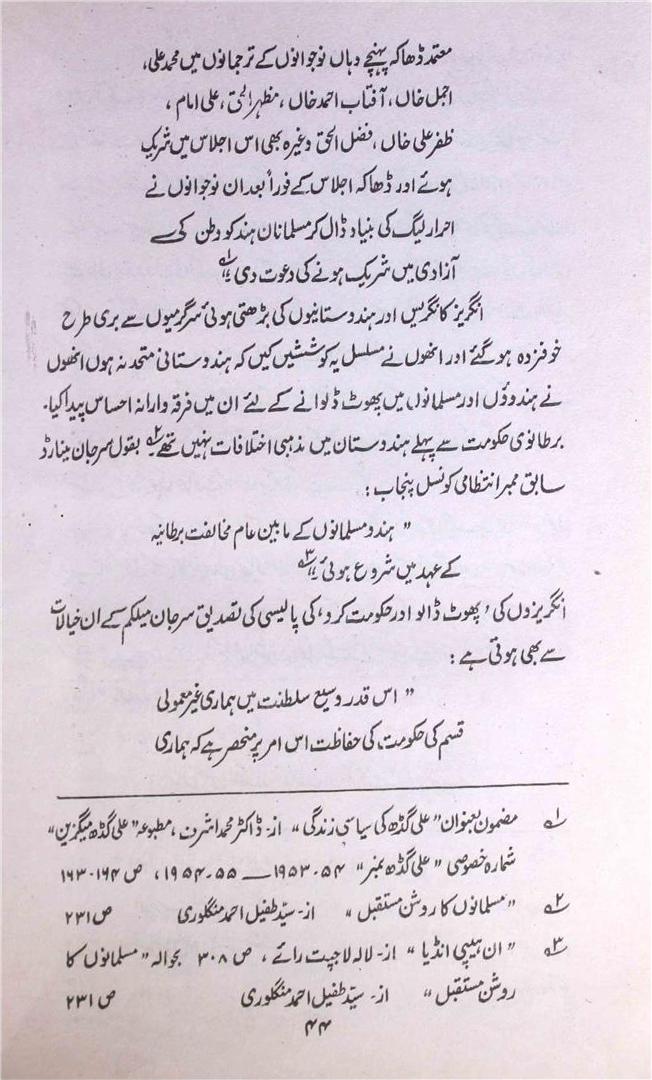 معتمد ڈھاکہ پہنچے وہاں نوجوانوں کے ترجمانوں میں محمد علی،
اجمل خاں، آفتاب احمد خاں، مظہر الحق، علی امام،
ظفر علی خاں، فضل الحق وغیرہ بھی اس اجلاس میں شریک
ہوئے اور ڈھاکہ اجلاس کے فوراً بعد ان نوجوانوں نے
احرار لیگ کی بنیاد ڈال کر مسلمانان ہند کو وطن کی
آزادی میں شریک ہونے کی دعوت دی۔" ۱؎
انگریز کانگریس اور ہندوستانیوں کی بڑھتی ہوئی سرگرمیوں سے بری طرح
خوفزدہ ہوگئے اور انھوں نے مسلسل یہ کوششیں کیں کہ ہندوستانی متحد نہ ہوں انھوں
نے ہندوؤں اور مسلمانوں میں پھوٹ ڈلوانے کے لئے ان میں فرقہ وارانہ احساس پیدا کیا۔
برطانوی حکومت سے پہلے ہندوستان میں مذہبی اختلافات نہیں تھے ۲؎ بقول سر جان مینارڈ
سابق ممبر انتظامی کونسل پنجاب:
" ہندو مسلمانوں کے مابین عام مخالفت برطانیہ
کے عہد میں شروع ہوئی۔" ۳؎
انگریزوں کی 'پھوٹ ڈالو اور حکومت کرو' کی پالیسی کی تصدیق سر جان میلکم کے ان خیالات
سے بھی ہوتی ہے:
" اس قدر وسیع سلطنت میں ہماری غیر معمولی
قسم کی حکومت کی حفاظت اس امر پر منحصر ہے کہ ہماری
۱؎ مضمون بعنوان "علی گڈھ کی سیاسی زندگی" از۔ ڈاکٹر محمد اشرف، مطبوعہ "علی گڈھ میگزین"
شمارہ خصوصی "علی گڈھ نمبر" ۵۴-۱۹۵۳ — ۵۵-۱۹۵۴، ص ۱۶۴-۱۶۳
۲؎ "مسلمانوں کا روشن مستقبل" از۔ سید طفیل احمد منگلوری ص ۲۳۱
۳؎ "ان ہیپی انڈیا" از۔ لالہ لاجپت رائے، ص ۳۰۸ بحوالہ "مسلمانوں کا
روشن مستقبل" از۔ سید طفیل احمد منگلوری ص ۲۳۱
۴۴